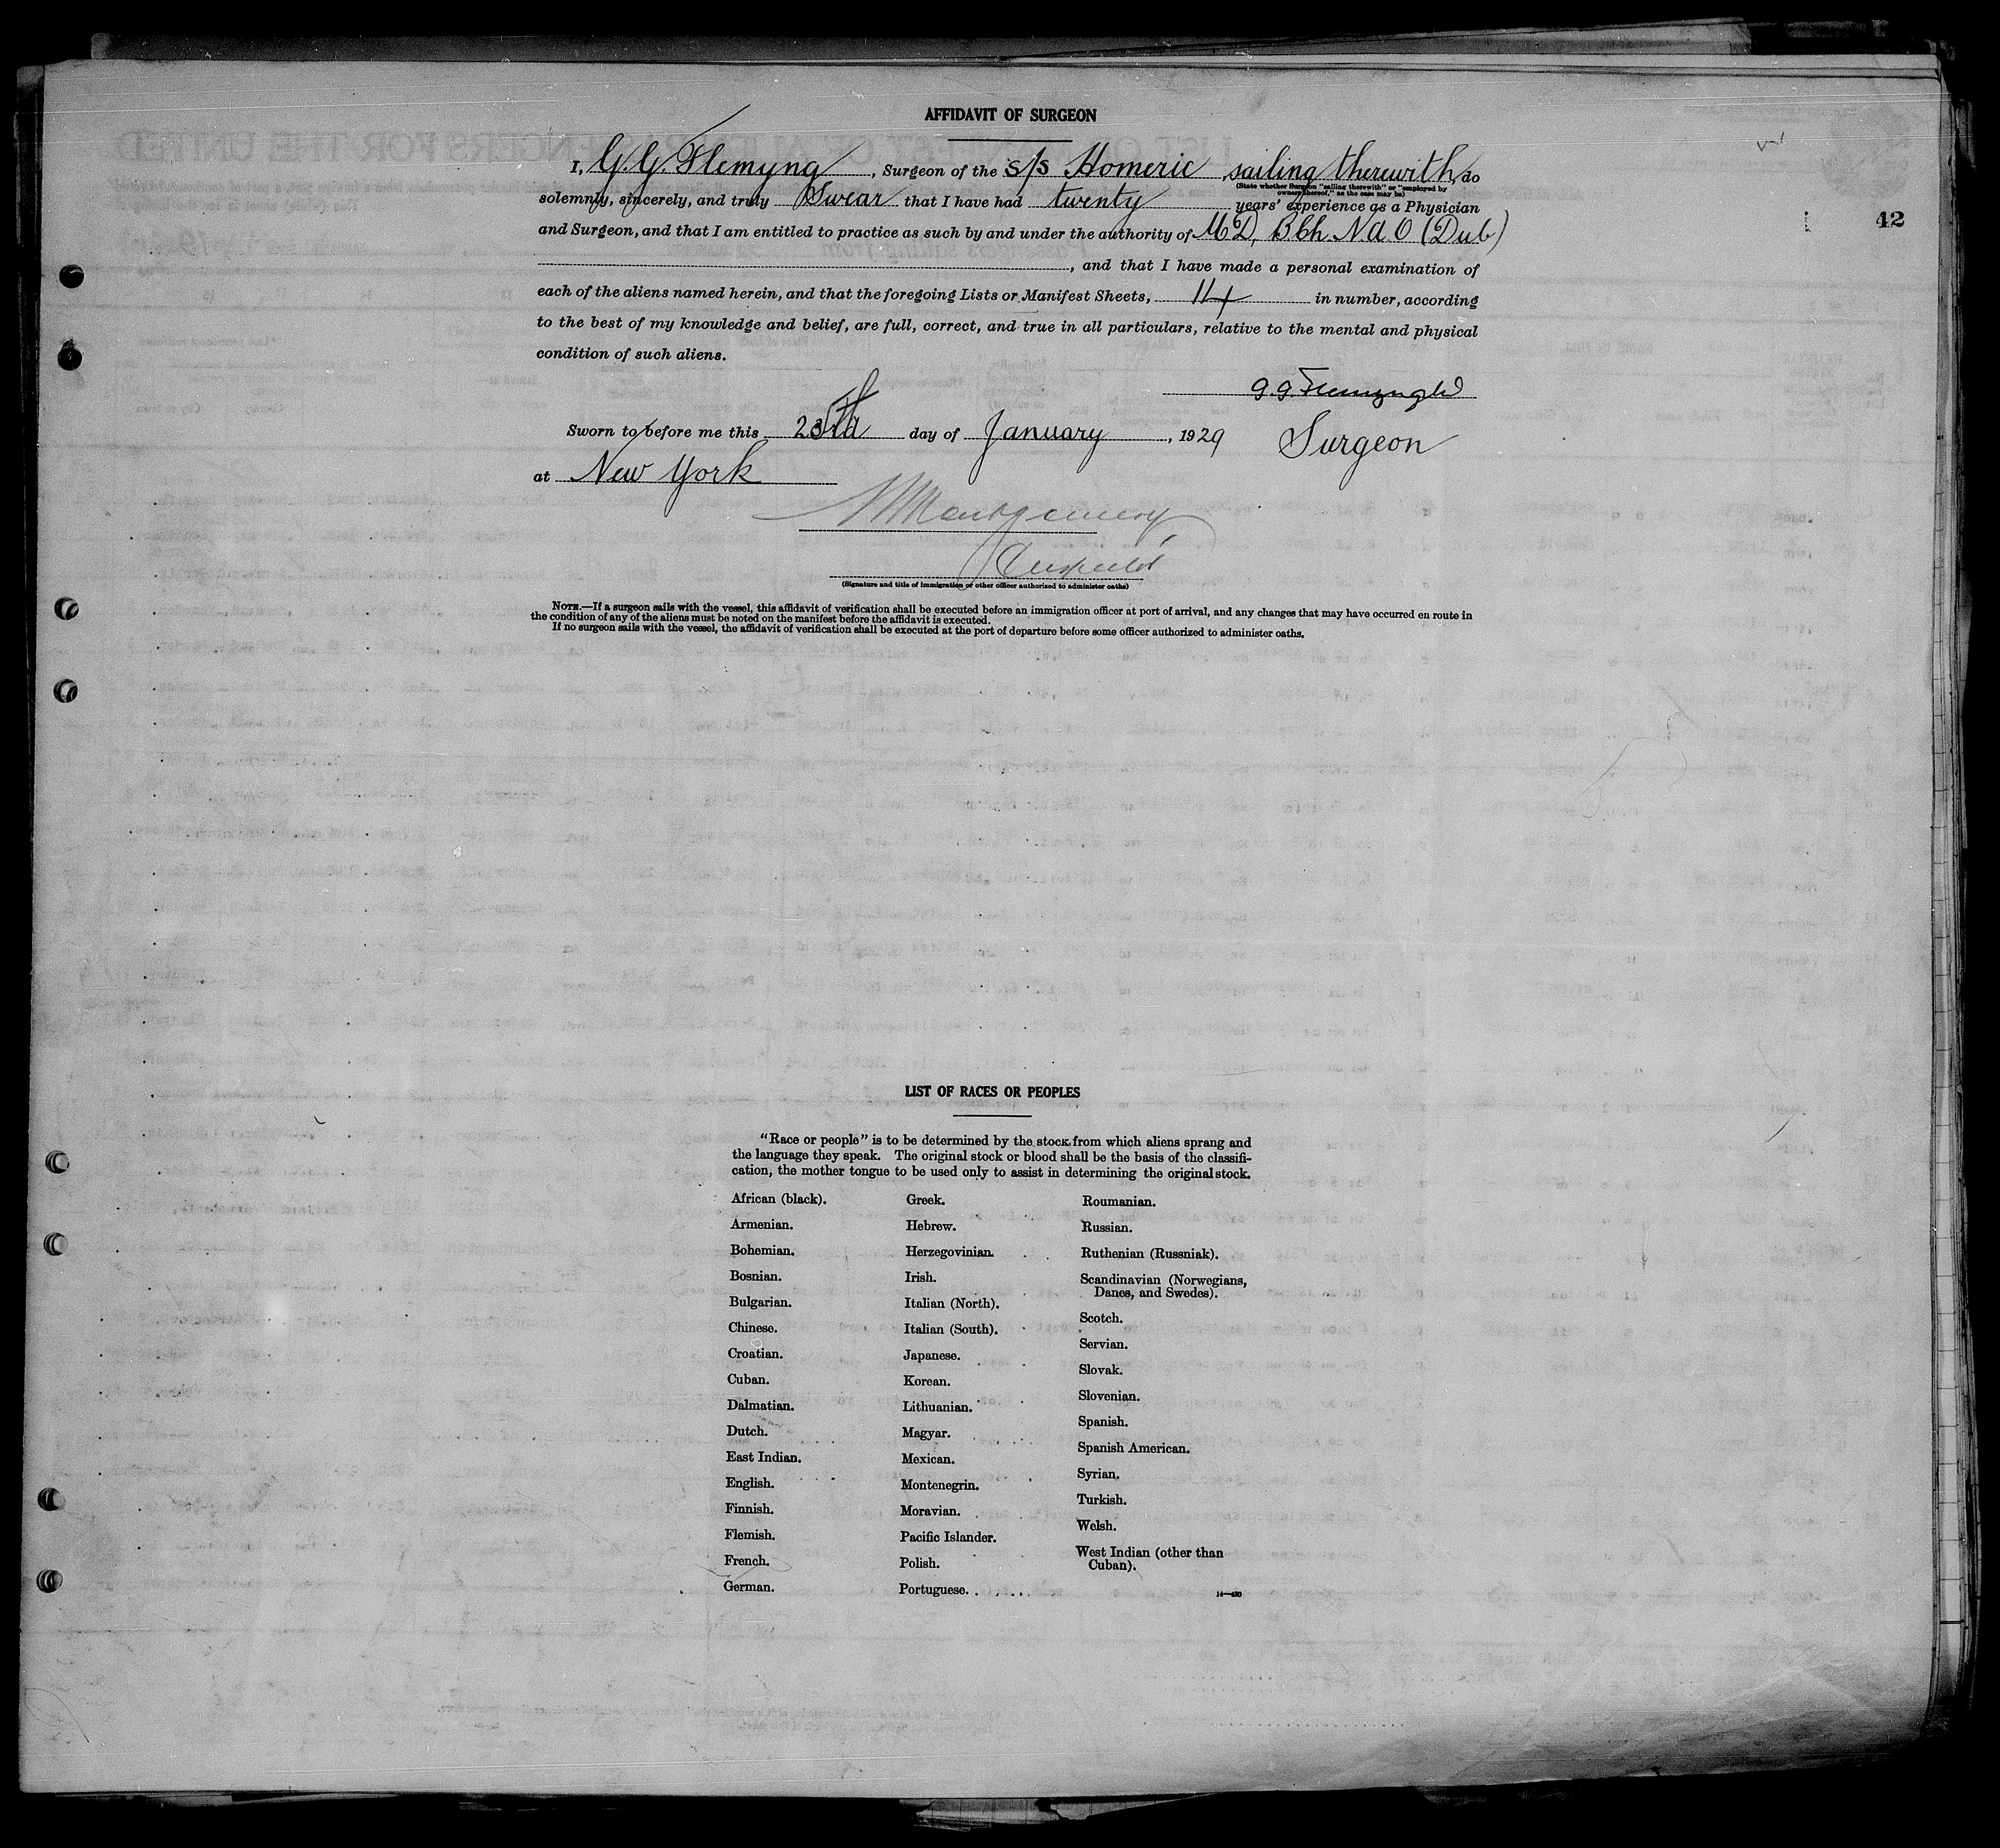 AFFIDAVIT OF SURGEON
42
I, G. G. Flemyng, Surgeon of the S/S Homeric sailing therewith, do
(State whether Surgeon "sailing therewith" or "employed by
owners thereof," as the case may be)
solemnly, sincerely, and truly Swear that I have had twenty years' experience as a Physician
and Surgeon, and that I am entitled to practice as such by and under the authority of MD, Bch. N d O (Dub)
, and that I have made a personal examination of
each of the aliens named herein, and that the foregoing Lists or Manifest Sheets, 14 in number, according
to the best of my knowledge and belief, are full, correct, and true in all particulars, relative to the mental and physical
condition of such aliens.
G. G. Flemyng
Sworn to before me this day of January, 1929 Surgeon
at New York
Montgomery
(Signature and title of immigration or other officer authorized to administer oaths)
NOTE.—If a surgeon sails with the vessel, this affidavit of verification shall be executed before an immigration officer at port of arrival, and any changes that may have occurred en route in
the condition of any of the aliens must be noted on the manifest before the affidavit is executed.
If no surgeon sails with the vessel, the affidavit of verification shall be executed at the port of departure before some officer authorized to administer oaths.
LIST OF RACES OR PEOPLES
"Race or people" is to be determined by the stock from which aliens sprang and
the language they speak. The original stock or blood shall be the basis of the classifi-
cation, the mother tongue to be used only to assist in determining the original stock.
African (black).
Armenian.
Bohemian.
Bosnian.
Bulgarian.
Chinese.
Croatian.
Cuban.
Dalmatian.
Dutch.
East Indian.
English.
Finnish.
Flemish.
French.
German.
Greek.
Hebrew.
Herzegovinian.
Irish.
Italian (North).
Italian (South).
Japanese.
Korean.
Lithuanian.
Magyar.
Mexican.
Montenegrin.
Moravian.
Pacific Islander.
Polish.
Portuguese.
Roumanian.
Russian.
Ruthenian (Russniak).
Scandinavian (Norwegians,
Danes, and Swedes).
Scotch.
Servian.
Slovak.
Slovenian.
Spanish.
Spanish American.
Syrian.
Turkish.
Welsh.
West Indian (other than
Cuban).